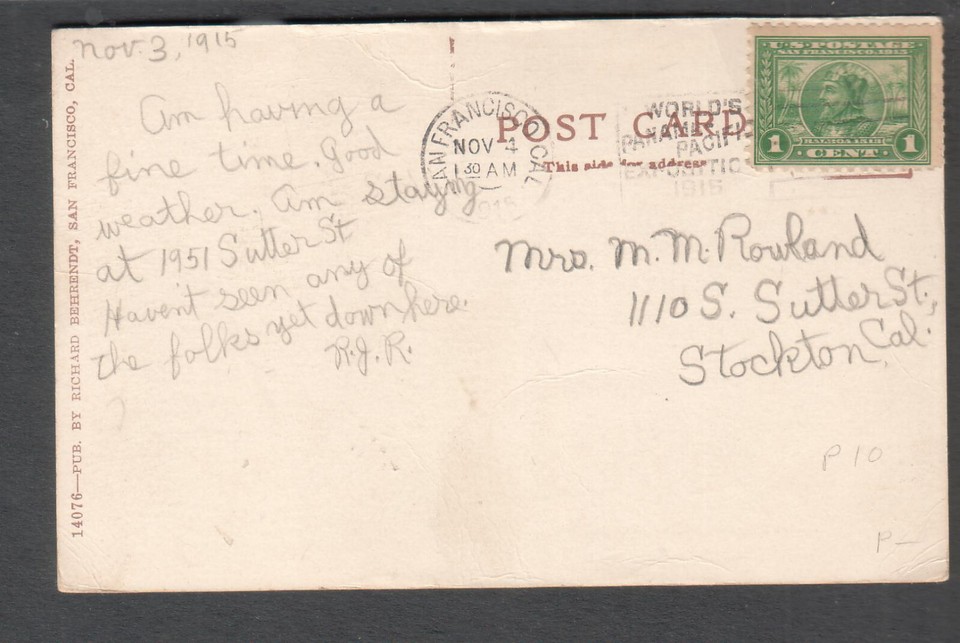 Nov. 3, 1915
Am having a
fine time. Good
weather. Am staying
at 1951 Sutter St
Havent seen any of
the folks yet down here.
R.J.R.
14076—PUB. BY RICHARD BEHRENDT, SAN FRANCISCO, CAL.
SAN FRANCISCO, CAL.
NOV 4
130 AM
1915
POST CARD
This side for address
WORLD'S
PANAMA
PACIFIC
EXPOSITION
1915
U.S. POSTAGE
SAN FRANCISCO 1915
BALBOA 1513
1 CENT 1
Mrs. M. M. Rowland
1110 S. Sutter St.,
Stockton, Cal.
P 10
P—